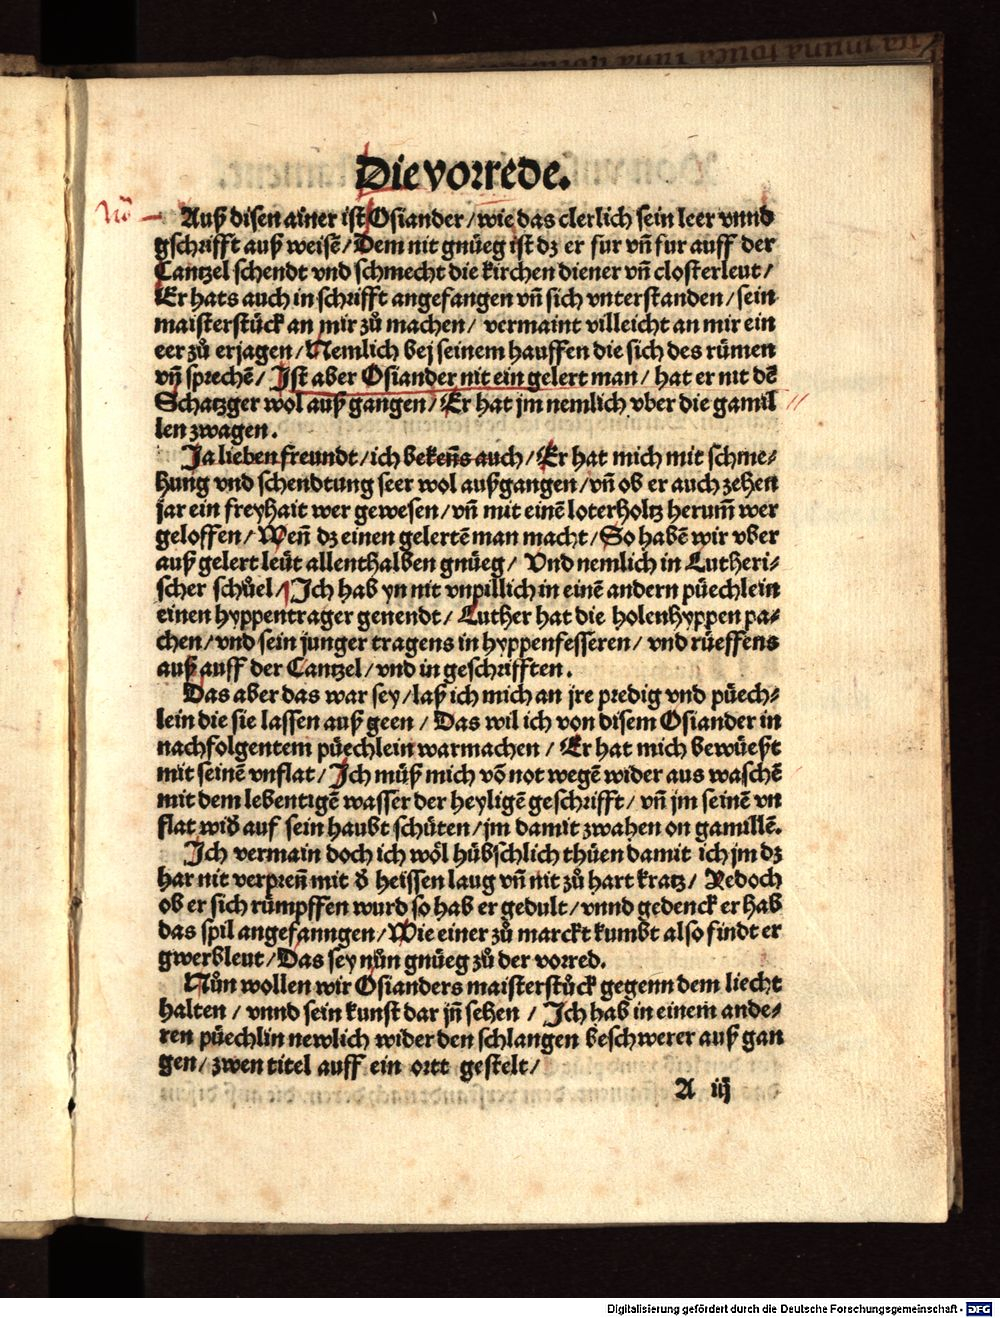 Die vorrede.
Auß disen ainer ist Osiander / wie das clerlich sein leer vnnd
gschrifft auß weisẽ / Dem nit gnüeg ist dz er fur vñ fur auff der
Cantzel schendt vnd schmecht die kirchen diener vñ closterleut /
Er hats auch in schrifft angefangen vñ sich vnterstanden / sein
maisterstück an mir zů machen / vermaint villeicht an mir ein
eer zů erjagen / Nemlich bej seinem hauffen die sich des rümen
vñ sprechẽ / Ist aber Osiander nit ein gelert man / hat er nit dẽ
Schatzger wol auß gangen / Er hat jm nemlich vber die gamil
len zwagen.
Ja lieben freundt / ich bekeñs auch / Er hat mich mit schme-
hung vnd schendtung seer wol außgangen / vñ ob er auch zehen
jar ein freyhait wer gewesen / vñ mit einẽ loterholtz herum̃ wer
geloffen / Weñ dz einen gelertẽ man macht / So habẽ wir vber
auß gelert leüt allenthalben gnüeg / Vnd nemlich in Lutheri-
scher schůel / Ich hab yn nit vnpillich in einẽ andern püechlein
einen hyppentrager genendt / Luther hat die holenhyppen pa-
chen / vnd sein junger tragens in hyppenfesseren / vnd rüeffens
auß auff der Cantzel / vnd in geschrifften.
Das aber das war sey / laß ich mich an jre predig vnd püech-
lein die sie lassen auß geen / Das wil ich von disem Osiander in
nachfolgentem püechlein warmachen / Er hat mich bewüeßt
mit seinẽ vnflat / Ich müß mich võ not wegẽ wider aus waschẽ
mit dem lebentigẽ wasser der heyligẽ geschrifft / vñ jm seinẽ vn
flat wid̃ auf sein haubt schüten / jm damit zwahen on gamillẽ.
Ich vermain doch ich wöl hübschlich thüen damit ich jm dz
har nit verpreñ mit d̃ heissen laug vñ nit zů hart kratz / Jedoch
ob er sich rümpffen wurd so hab er gedult / vnnd gedenck er hab
das spil angefanngen / Wie einer zů marckt kumbt also findt er
gwerbleut / Das sey nůn gnüeg zů der vorred.
Nůn wollen wir Osianders maisterstůck gegenn dem liecht
halten / vnnd sein kunst dar jñ sehen / Ich hab in einem ande-
ren püechlin newlich wider den schlangen beschwerer auß gan
gen / zwen titel auff ein ortt gestelt /
A iij
Digitalisierung gefördert durch die Deutsche Forschungsgemeinschaft - DFG